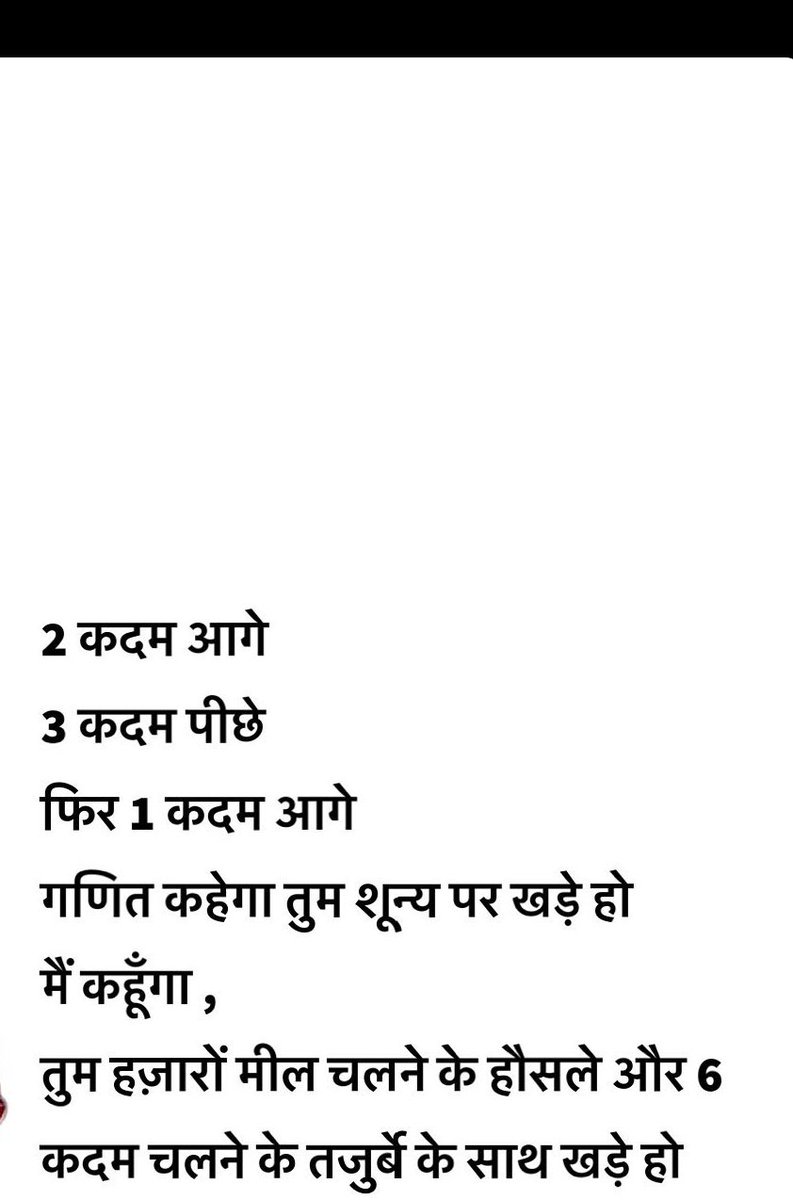 2 कदम आगे
3 कदम पीछे
फिर 1 कदम आगे
गणित कहेगा तुम शून्य पर खड़े हो
मैं कहूँगा ,
तुम हज़ारों मील चलने के हौसले और 6
कदम चलने के तजुर्बे के साथ खड़े हो